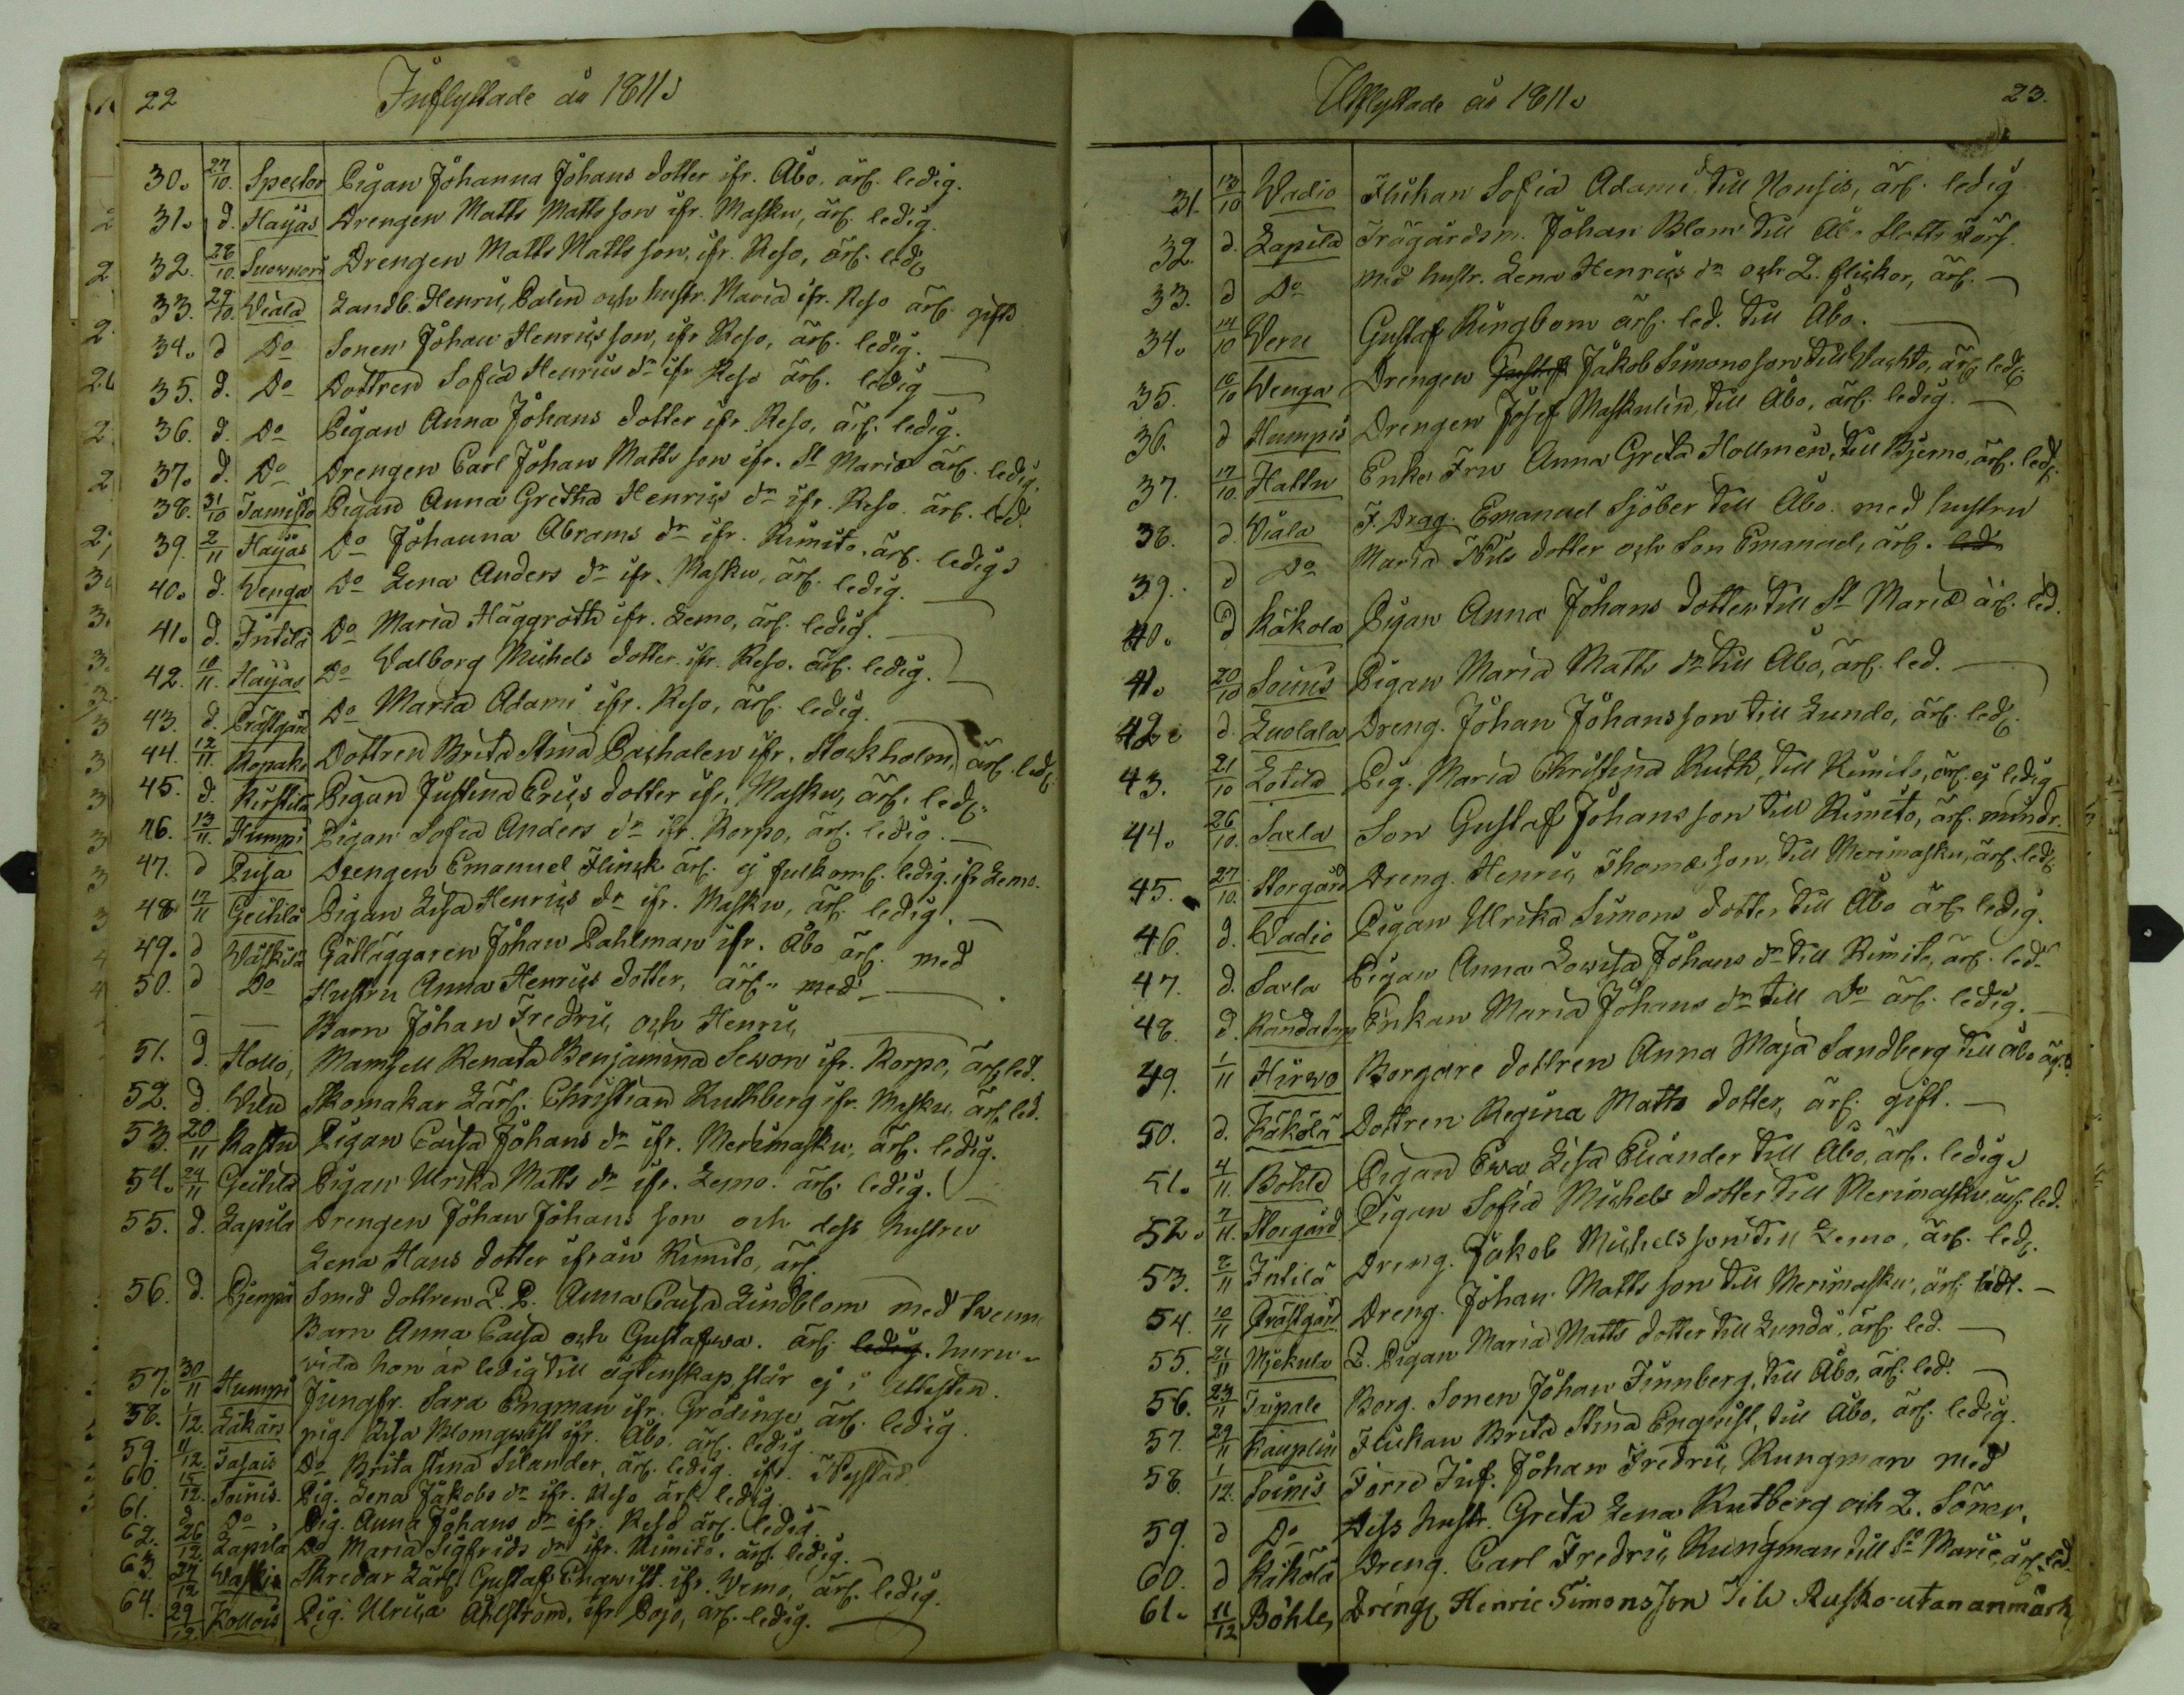 22
Inflyttade år 1811.
30. 27/10. Spector Pigan Johanna Johans dotter ifr. Åbo, ärl. ledig.
31. d. Haijas Drengen Matts Matts son ifr. Masku, ärl. ledig.
32. 28/10. Drengen Matts Matts son, ifr. Reso, ärl. led.
33. 29/10. Viala Landb. Henric Palin och hustr. Maria ifr. Reso ärl. gifta
34. d Do Sonen Johan Henrics son, ifr Reso, ärl. ledig.
35. d. Do Dottren Sofia Henrics dr ifr Reso ärl. ledig
36. d. Do Pigan Anna Johans dotter ifr. Reso, ärl. ledig.
37. d. Do Drengen Carl Johan Matts son ifr. St Mariæ ärl. ledig.
38. 31/10 Tamisto Pigan Anna Gretha Henrics dr ifr. Reso. ärl. led.
39. 2/11 Haijas Do Johanna Abrams dr ifr. Rimito, ärl. ledig
40. d. Wenga Do Lena Anders dr ifr. Masku, ärl. ledig.
41. d. Intilä Do Maria Häggroth ifr. Lemo, ärl. ledig.
42. 10/11. Haijas Do Walborg Michels dotter ifr. Reso. ärl. ledig.
43. d. Prästgård Do Maria Adami ifr. Reso, ärl. ledig.
44. 12/11. Dottren Brita Stina Paxhalen ifr. Stockholm, ärl. led.
45. d. Kirstila Pigan Justina Erics dotter ifr. Masku, ärl. led.
46. 13/11. Humpi Pigan Sofia Anders dr ifr. Korpo, ärl. ledig.
47. d Drengen Emanuel Flinck ärl. ej fulkoml. ledig. ifr Lemo.
48 17/11 Geitila Pigan Lisa Henrics dr ifr. Masku, ärl. ledig.
49. d Wäskilä Gatläggaren Johan Dahlman ifr. Åbo ärl. med
50. d Do Hustru Anna Henrics dotter, ärl. med
— — Barn Johan Fredric, och Henric,
51. d. Hollo, Mamsell Renata Benjamina Sewon ifr. Korpo, ärl. led.
52. d. Skomakar Lärl. Christian Ruthberg ifr. Masku ärl. led.
53. 20/11 Pigan Caisa Johans dr ifr. Merimasku, ärl. ledig.
54. 24/11 Geitila Pigan Ulrika Matts dr ifr. Lemo. ärl. ledig.
55. d. Lapila Drengen Johan Johans son och dess hustru
Lena Hans dotter ifrån Rimito, ärl.
56. d. Smed dottren L. P. Anna Caisa Lindblom med twenne
Barn Anna Caisa och Gustafwa. ärl. ledig. huru-
vida hon är ledig till ägtenskap står ej i Attesten.
57. 30/11 Humpi Jungfr. Sara Engman ifr. Grödinge ärl. ledig.
58. 1/12. pig. Lisa Blomqwist ifr. Åbo. ärl. ledig.
59. 11/12. Do Brita Stina Silander, ärl. ledig. ifr. Nystad
60. 15/12. Soinis. Pig. Lena Jakobs dr ifr. Reso ärl. ledig.
61. d Do, Pig. Anna Johans dr ifr. Reso ärl. ledig.
62. 26/12. Lapila Do Maria Sigfrids dr ifr. Rimito. ärl. ledig.
63. 27/12 Skredar Lärl. Gustaf Engwist. ifr. Wemo, ärl. ledig.
64. 29/12. Kollois Pig. Ulrica Ahlström, ifr Pojo, ärl. ledig.
Utflyttade år 1811.
23.
31. 13/10 Wadio Flickan Sofia Adami, till Nousis, ärl. ledig
32. d. Lapila Trägårdsm. Johan Blom till Åbo Slotts förs.
33. d Do med hustr. Lena Henrics dr och 2. flickor, ärl.
34. 14/10 Gustaf Ringbom ärl. led. till Åbo.
35. 16/10 Wenga Drengen Gustaf Jakob Simons son till Wachto, ärl led.
36. d Humpis Drengen Josef Maskulin, till Åbo, ärl. ledig.
37. 17/10. Hattu Enke Fru Anna Greta Hollmén, till Bjerno, ärl. led.
38. d. Viala F. Drag. Emanuel Sjöber till Åbo. med hustru
39. d Do Maria Nils dotter och Son Emanuel, ärl. led
40. d Käkola Pigan Anna Johans dotter till St Mariæ ärl. led.
41. 20/10 Soinis Pigan Maria Matts dr till Åbo, ärl. led.
42. d. Luolala Dreng. Johan Johansson till Lundo, ärl. led.
43. 21/10 Lotila Pig. Maria Christina Ruth, till Rimito, ärl. ej ledig
44. 26/10. Saxla Son Gustaf Johans son till Rimito, ärl. mindr.
45. 27/10. Storgård Dreng. Henric Thomæ son, till Merimasku, ärl. led.
46. d. Wadio Pigan Ulrika Simons dotter till Åbo ärl. ledig.
47. d. Saxla Pigan Anna Lowisa Johans dr till Rimito, ärl. led.
48. d. Enkan Maria Johans dr till Do ärl. ledig.
49. 1/11 Hirwo Borgare dottren Anna Maja Sandberg till Åbo ärl.
50. d. Käkölä Dottren Regina Matts dotter, ärl. gift.
51. 4/11. Böhle Pigan Ewa Lisa Eliander till Åbo, ärl. ledig.
52. 7/11. Storgård Pigan Sofia Michels dotter till Merimasku ärl. led.
53. 8/11 Intilä Dreng. Jakob Michels son till Lemo, ärl. led.
54. 10/11 Prästgård Dreng. Johan Matts son till Merimasku, ärl. lädt.
55. 21/11 L. Pigan Maria Matts dotter till Lundo, ärl. led.
56. 23/11 Taipale Borg. Sonen Johan Finnberg, till Åbo, ärl. led.
57. 29/11 Kauplin Flickan Brita Stina Engwist, till Åbo, ärl. ledig.
58. 1/12. Soinis Förre Inf. Johan Fredric Rungman med
59. d Do Dess hustr. Greta Lena Rutberg och 2. Söner.
60. d Käkölä Dreng. Carl Fredric Rungman till St Mariæ, ärl. led.
61. 11/12 Böhle, Dreng. Henric Simonsson Till Rusko utan anmärk